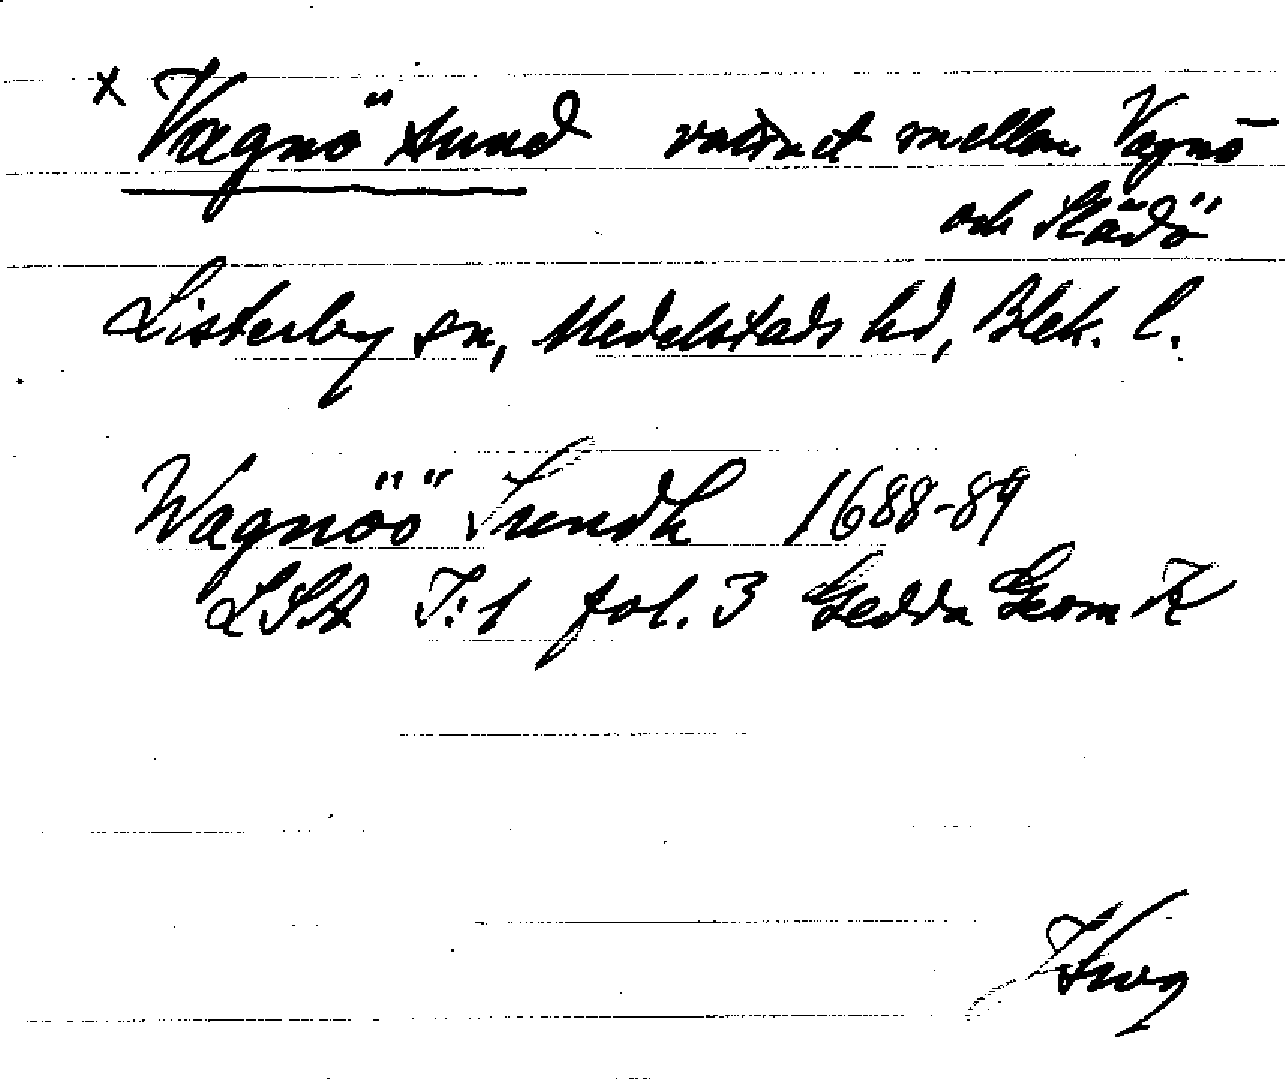 x Vagnö sund vattnet mellan Vagnö
och Slädö
Listerby sn, Medelstads hd, Blek. l.
Wagnöö Sundh 1688-89
LSA I:1 fol. 3 Gedda Geom K